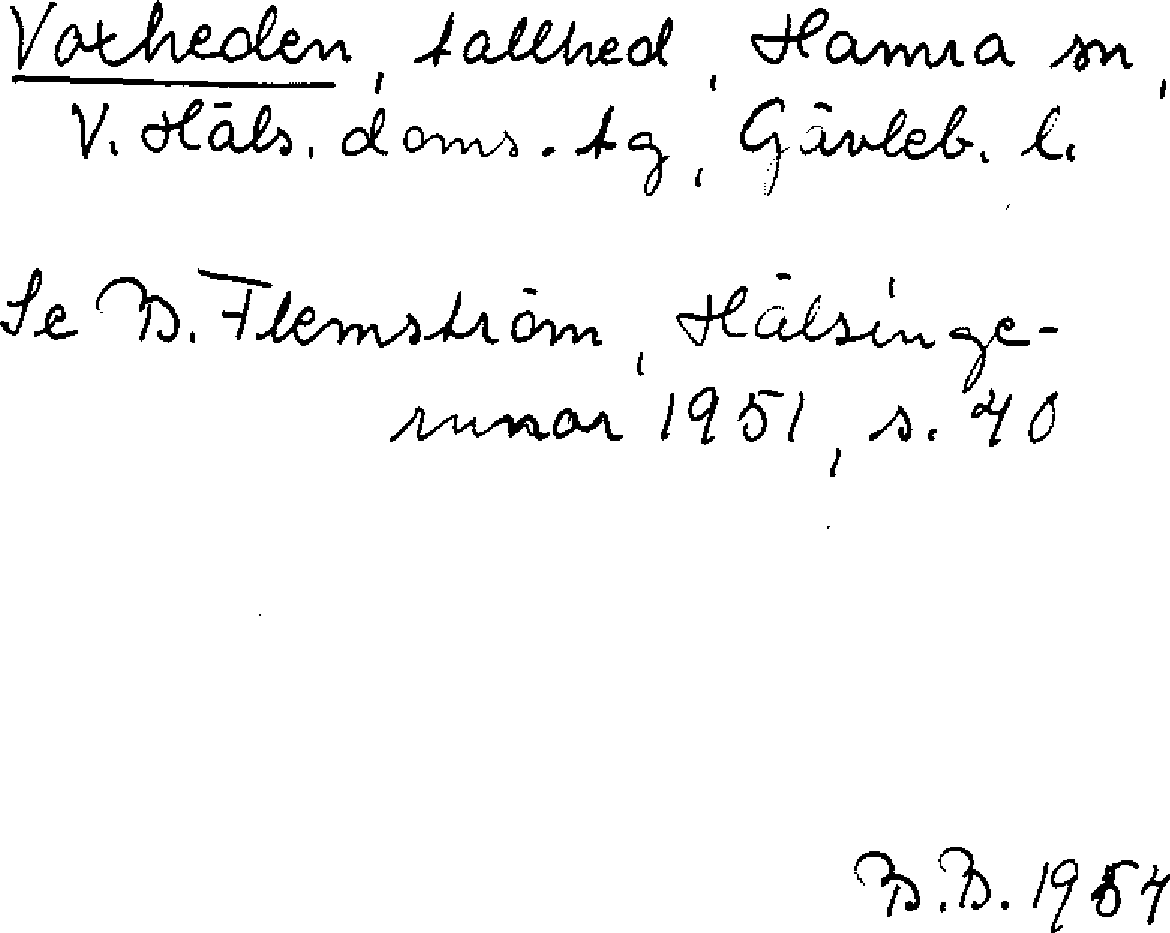 Voxheden, tallhed, Hamra sn,
V. Häls. doms. tg, Gävleb. l.
Se B. Flemström, Hälsinge-
runor 1951, s. 40
B.B. 1954